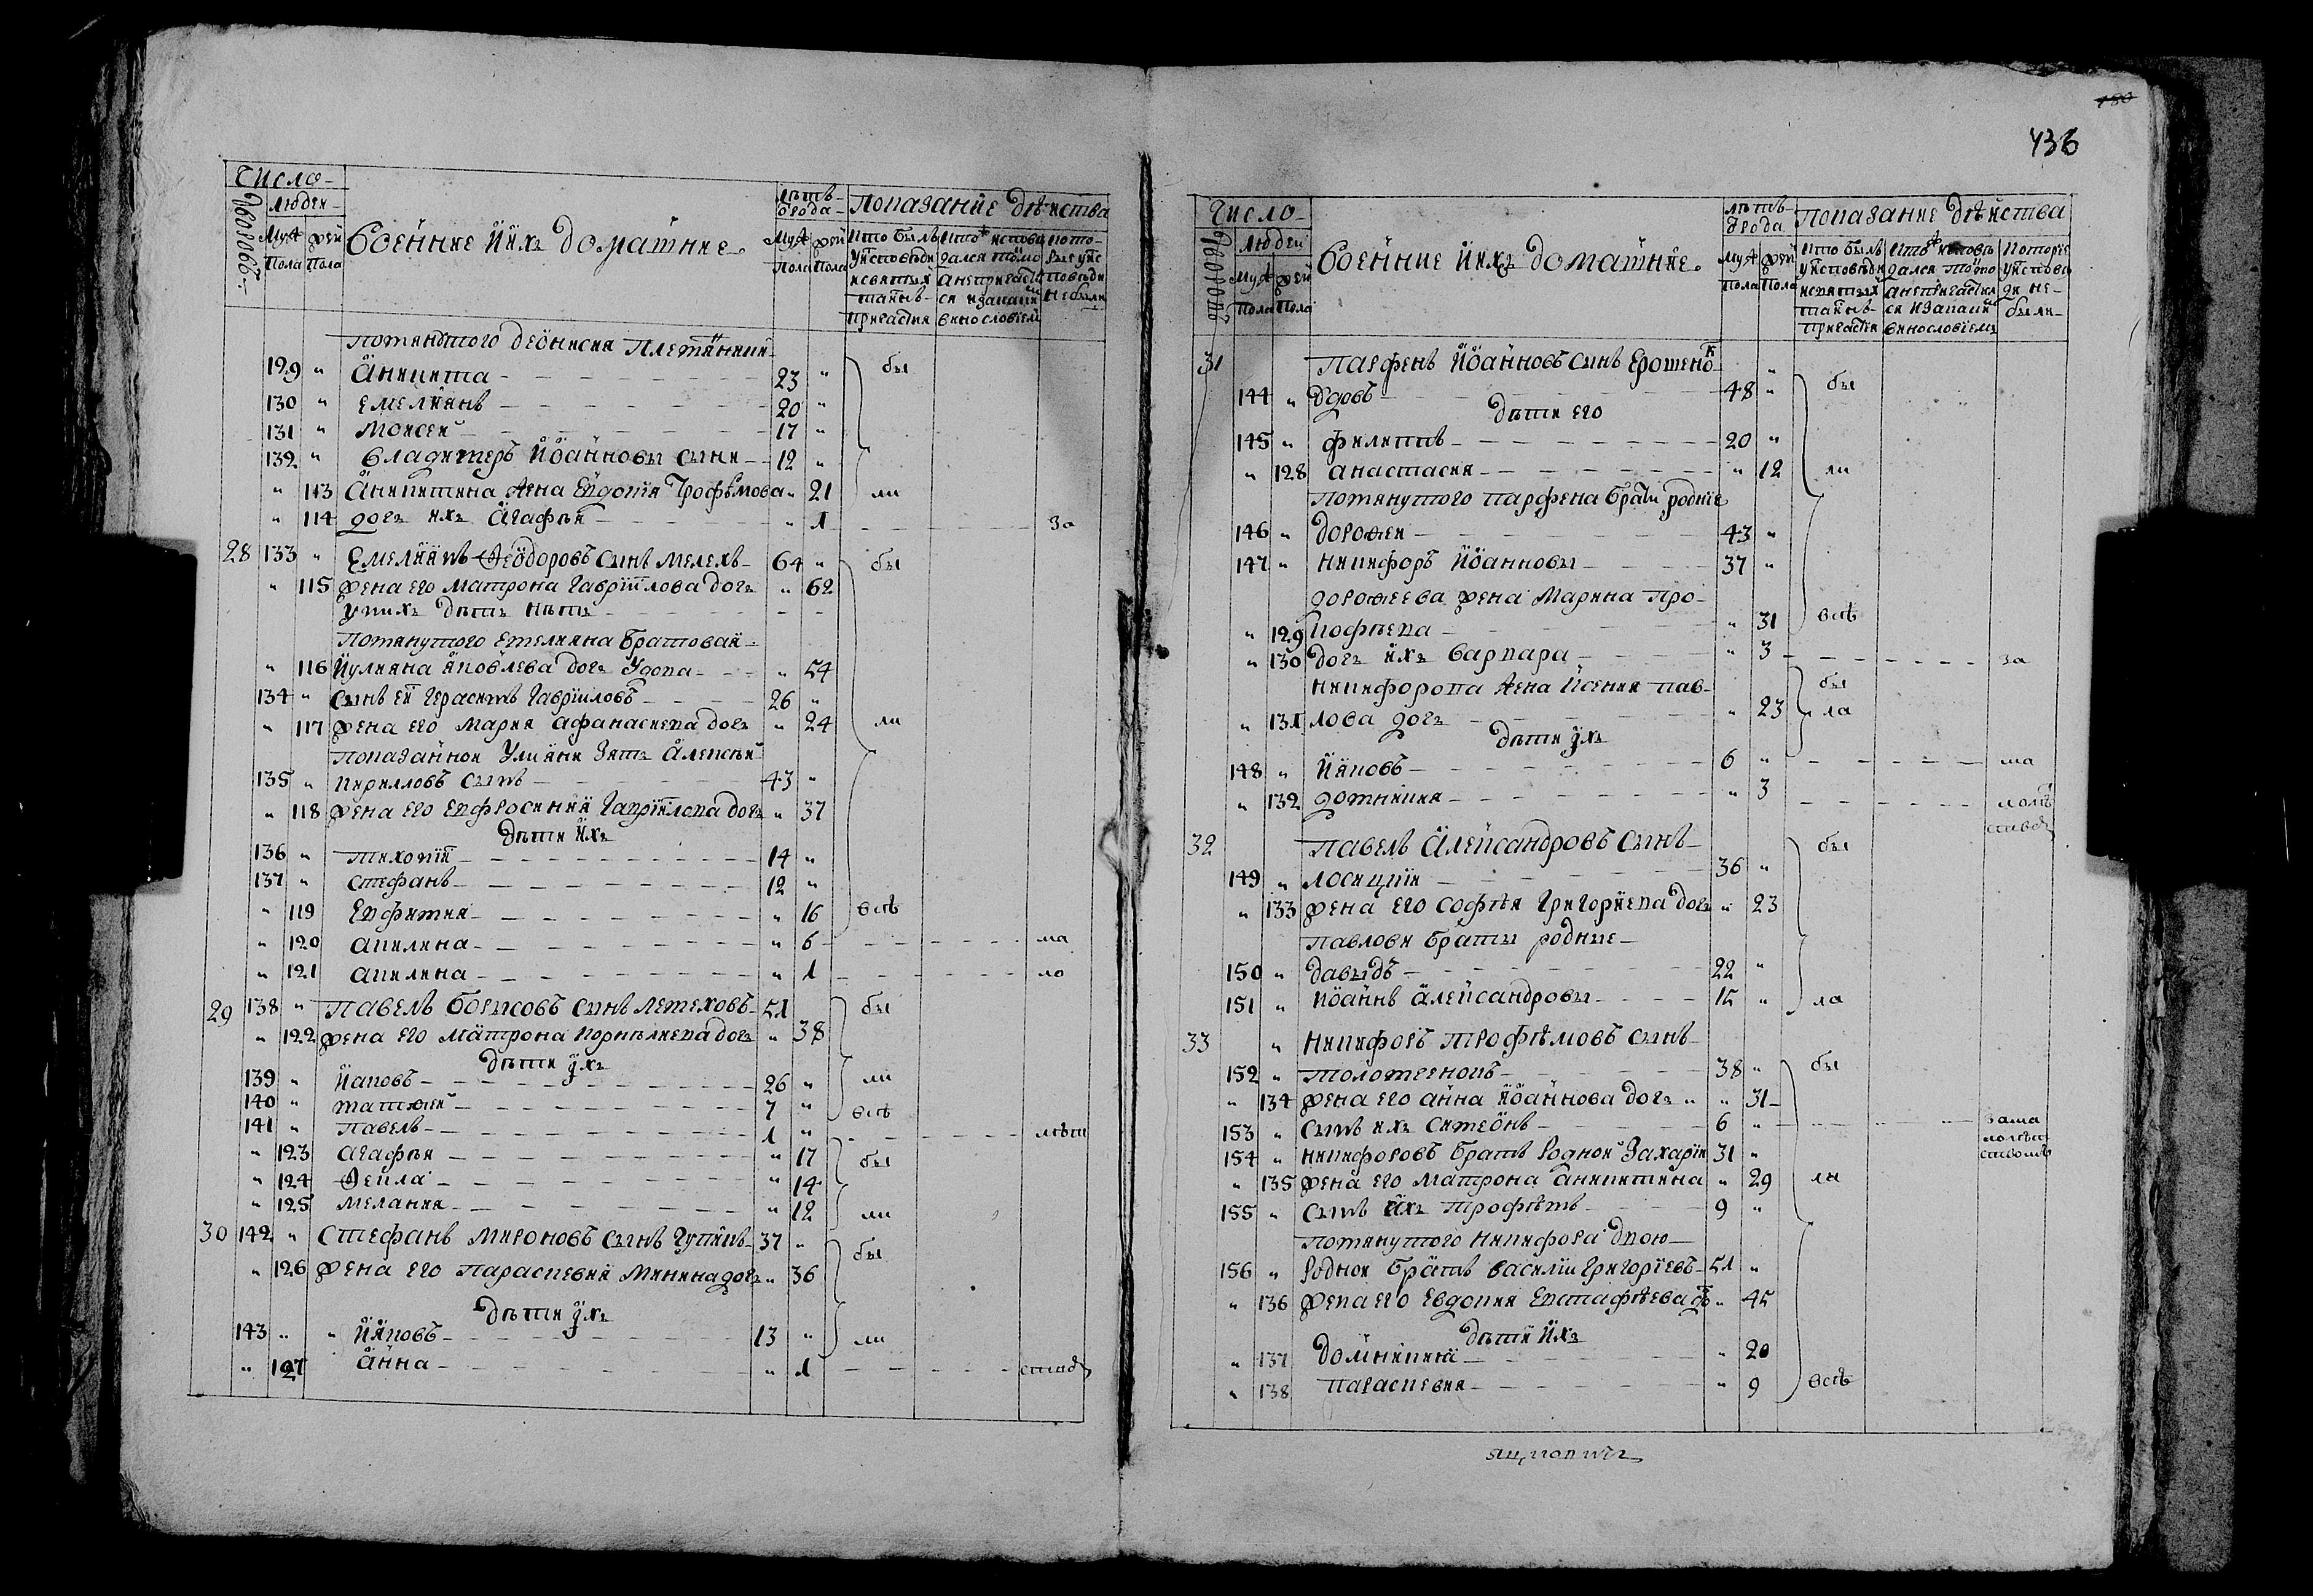 число
дворовъ
людеи
Муж
Пола
жен
Пола
Военние и ихъ домашние.
лѣтъ
отрода
Муж
Пола
жен
Пола
Показание дѣиства
Кто былъ
у исповѣди
и святыхъ
таинъ
причастия
Кто исповѣ
дался токмо
а не причасти
ся и за какимъ
винословіемъ
Кото
рые у ис
повѣди
не были
помянутого деонисия племянники
129 " Аникита 23 " бы
130 " емелиянъ 20 "
131 " моисеи 17 "
132 " владимеръ Иоанновы сыни 12 "
" 113 Аникитина жена Евдокия Трофѣмова " 21 ли
" 114 дочь ихъ Агафѣя " 1 за
28 133 " Емелиянъ Феодоровъ сынъ мелехъ 64 " бы
" 115 жена его матрона гавриилова дочь " 62
у нихъ дѣтеи нѣтъ
помянутого емелияна братовая
" 116 Иулияна яковлева дочь удова " 54
134 " сынъ еи герасимъ гаврииловъ 26 "
" 117 жена его мария афанасиева дочь " 24 ли
показанной улияни зять Алексѣй
135 " кирилловъ сынъ 43 "
" 118 жена его евфросиния гавриилова дочь " 37
дѣти ихъ
136 " тихонии 14 "
137 " стефанъ 12 "
" 119 Евфимия " 16 всѣ
" 120 акилина " 6 ма
" 121 акилина " 1 ло
29 138 " павелъ борисовъ сынъ летеховъ 51 " бы
" 122 жена его матрона корнѣлиева дочь " 38
дѣти ихъ
139 " Иаковъ 26 " ли
140 " матфей 7 " всѣ
141 " павелъ 1 " лѣт
" 123 агафѣя " 17 бы
" 124 Фекла " 14
" 125 мелания " 12 ли
30 142 " стефанъ мироновъ сынъ 37 " бы
" 126 жена его параскевия минина дочь " 36
дѣти ихъ
143 " " Иаковъ 13 " ли
" 127 Анна " 1 ством
436
число
дворовъ
людеи
Муж
Пола
жен
Пола
Военние и ихъ домашние.
лѣтъ
отрода
Муж
Пола
жен
Пола
Показание дѣиства
Кто былъ
у исповѣди
и святыхъ
таинъ
причастия
Кто исповѣ
дался токмо
а не причастил
ся и за какимъ
винословіемъ
Которіе
у исповѣ
ди не
были
31 парфенъ Иоанновъ сынъ ерошенок "
144 " вдовъ 48 " бы
дѣти его
145 " филиппъ 20 "
" 128 анастасия " 12 ли
помянутого парфена брати родние
146 " дорофеи 43 "
147 " никифоръ Иоанновы 37 "
дорофеева жена марина про
" 129 кофѣева " 31 всѣ
" 130 дочь ихъ варвара " 3 за
никифорова жена ксения пав бы
" 131 лова дочь " 23 ла
дѣти ихъ
148 " Иаковъ 6 " ма
" 132 домникия " 3 лолѣ
ством
32 павелъ Александровъ сынъ бы
149 " лосицкии 36 "
" 133 жена его софѣя григориева дочь " 23
павлови брати родние
150 " давыдъ 22 "
151 " Иоаннъ александровы 15 " ла
33 " никифоръ трофѣмовъ сынъ
152 " 38 " бы
" 134 жена его анна Иоаннова дочь " " 31
153 " сынъ ихъ симеонъ 6 " зама
лолѣт
ствомъ
154 " никифоровъ братъ родной захарии 31 "
" 135 жена его матрона аникитина " 29 ли
155 " сынъ ихъ трофѣмъ 9 "
помянутого никифора двою
156 " родной братъ василии григориевъ 51 "
" 136 жена его евдокия евстафѣева до " 45
дѣти ихъ
" 137 домникия " 20
" 138 параскевия " 9 всѣ